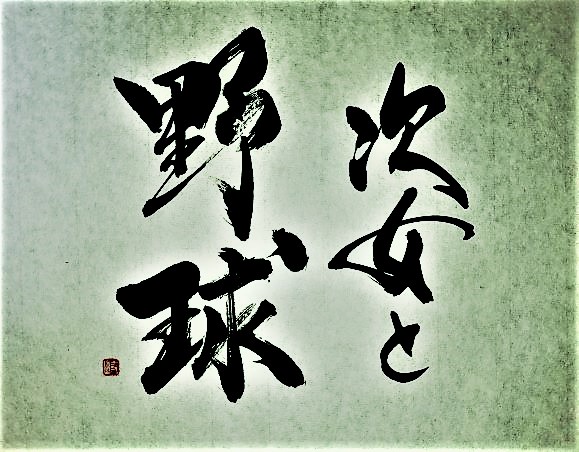 次女と
野球